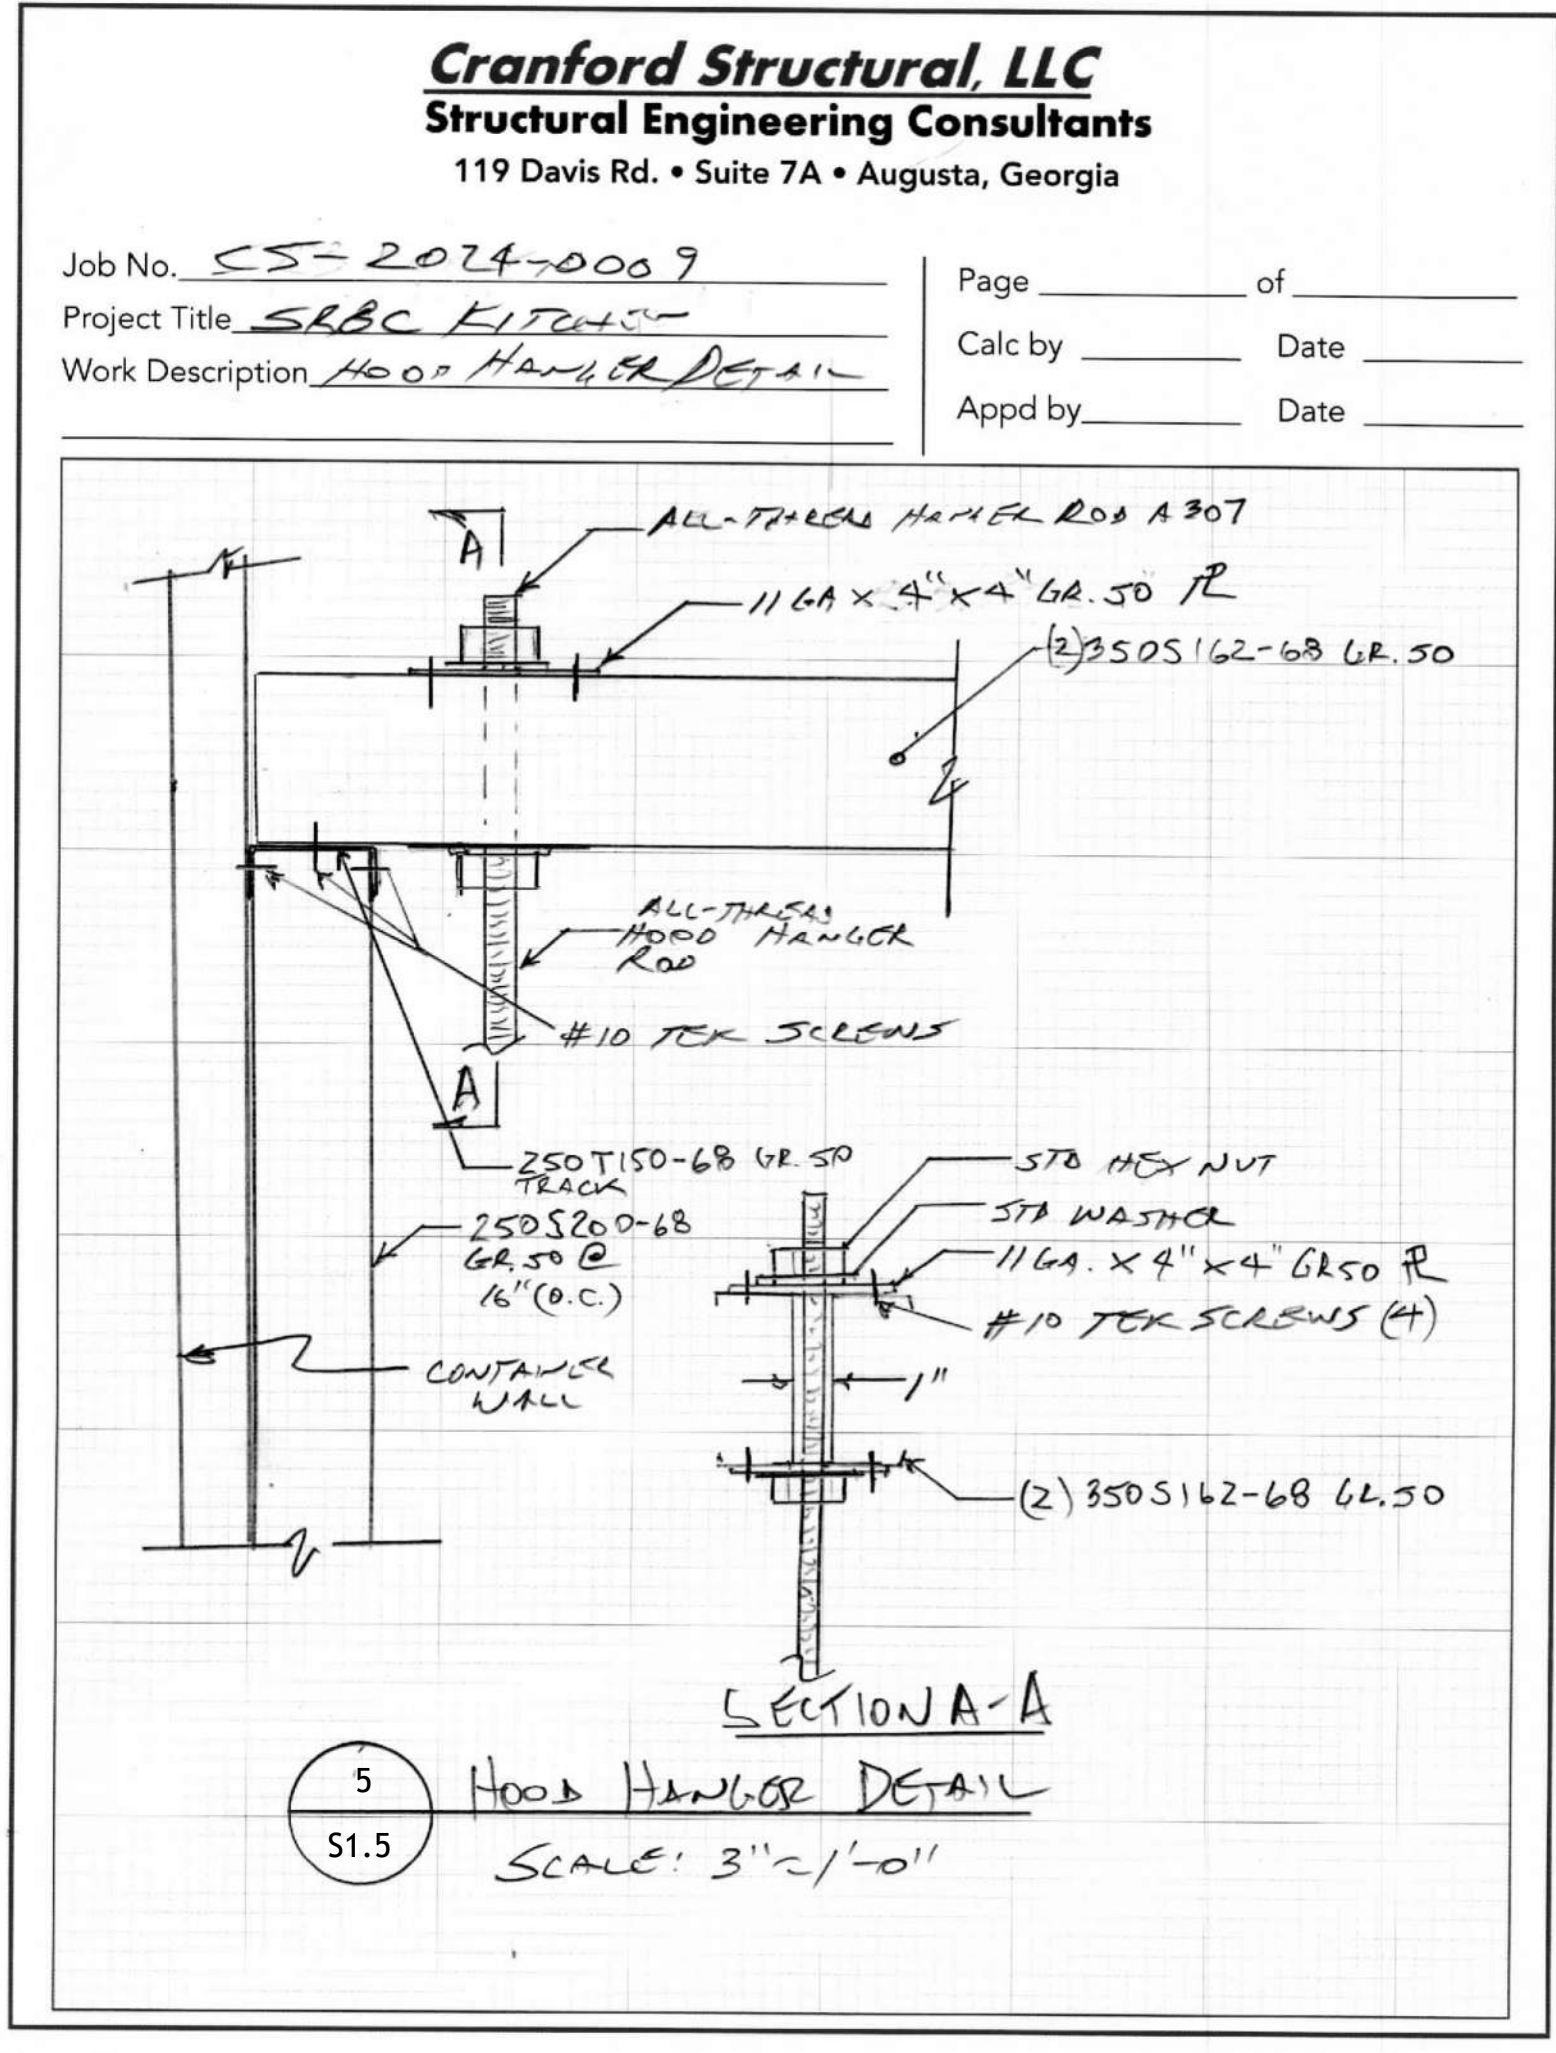 Cranford Structural, LLC
Structural Engineering Consultants
119 Davis Rd. • Suite 7A • Augusta, Georgia
Job No. CS-2024-0009
Project Title SRBC KITCHEN
Work Description HOOD HANGER DETAIL
Page of
Calc by Date
Appd by Date
A
ALL-THREAD HANGER ROD A307
11 GA X 4" X 4" GR. 50 PL
(2) 350S162-68 GR. 50
ALL-THREAD
HOOD HANGER
ROD
#10 TEK SCREWS
A
250T150-68 GR. 50
TRACK
250S200-68
GR. 50 @
16" (O.C.)
CONTAINER
WALL
STD HEX NUT
STD WASHER
11 GA. X 4" X 4" GR50 PL
#10 TEK SCREWS (4)
1"
(2) 350S162-68 GR. 50
SECTION A-A
5
S1.5
HOOD HANGER DETAIL
SCALE: 3"=1'-0"